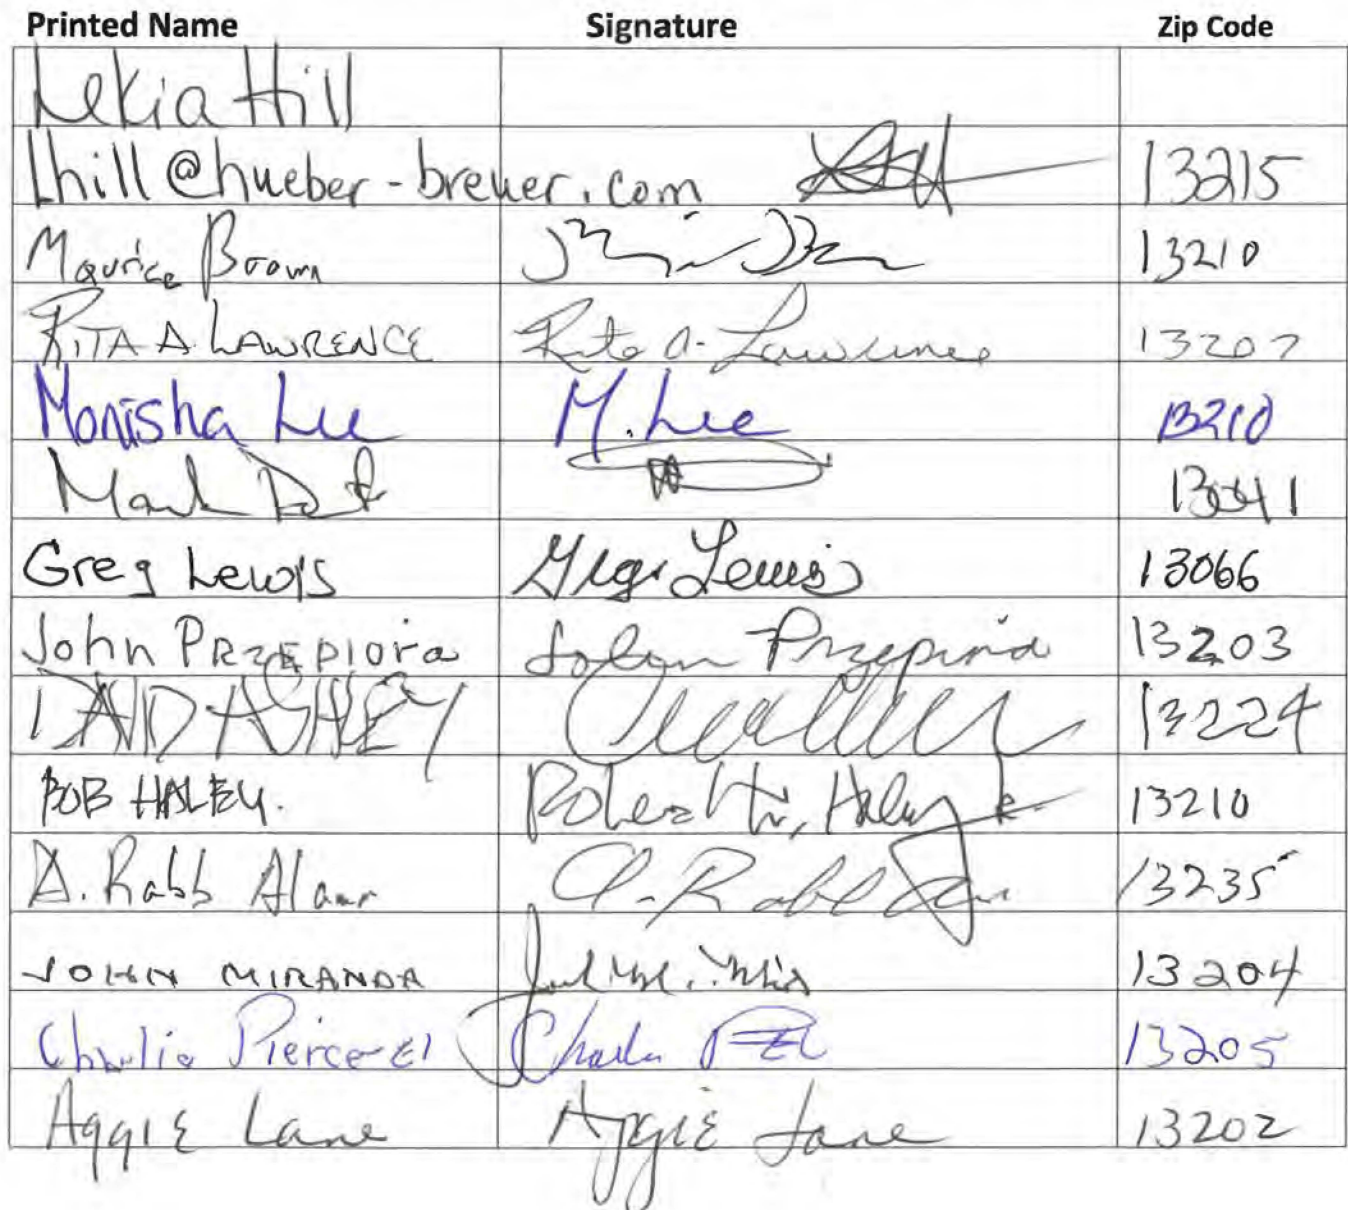 Printed Name Signature Zip Code
Lekia Hill
Lhill@hueber-breuer.com 13215
Maurice Brown 13210
RITA A. LAWRENCE Rita A. Lawrence 13207
Monisha Lee M. Lee 13210
Mark 13041
Greg Lewis Greg Lewis 13066
John PRZEPIORA John Przepiora 13203
DAVID ASHLEY 13224
BOB HALEY. Robert W. Haley Jr. 13210
A. Rabb Alamr A. Rabb 13235
JOHN MIRANDA 13204
Charlie Pierce-El Charlie 13205
AggiE Lane AggiE Lane 13202